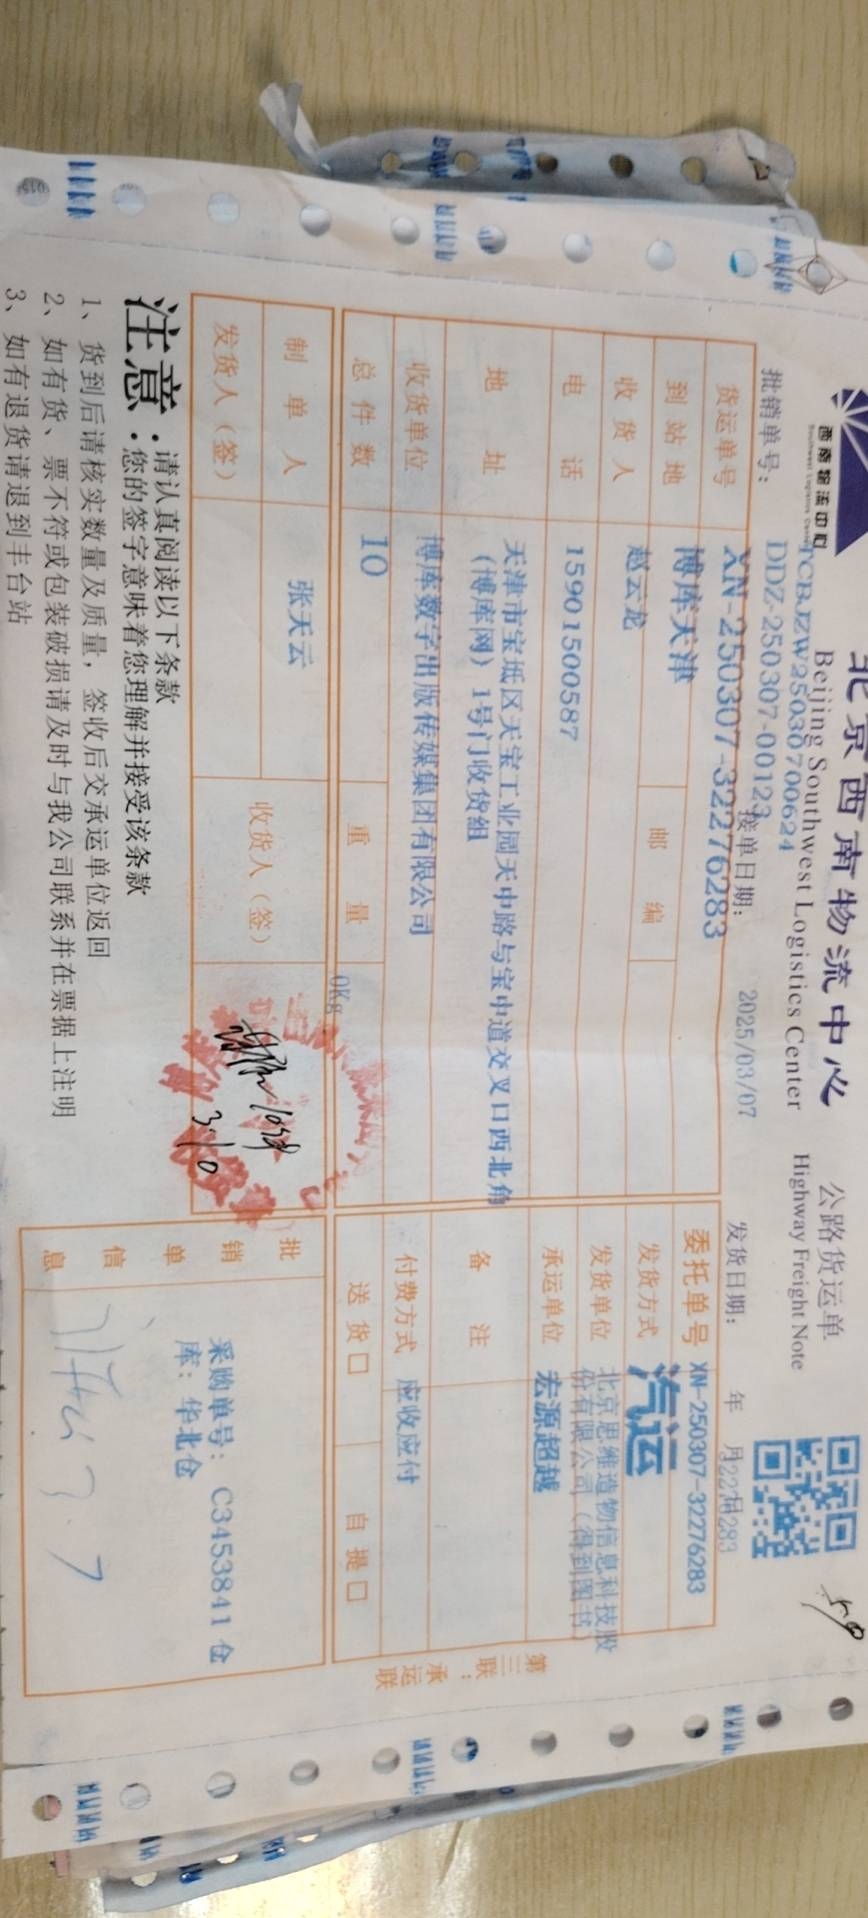 西南物流中心
Southwest Logistics Center
北京西南物流中心
公路货运单
Beijing Southwest Logistics Center
Highway Freight Note
TCBJZW25030700624
批销单号: DDZ-250307-00123
接单日期: 2025/03/07
发货日期: 年 月 日
货运单号 XN-250307-32276283
委托单号 XN-250307-32276283
到站地 博库天津
发货方式 汽运
收货人 赵云龙
邮编
发货单位 北京思维造物信息科技股
份有限公司（得到图书）
电话 15901500587
承运单位 宏源超越
地址 天津市宝坻区天宝工业园天中路与宝中道交叉口西北角
（博库网）1号门收货组
备注
收货单位 博库数字出版传媒集团有限公司
付费方式 应收应付
总件数 10
重量 0Kg
送货口 自提口
制单人 张天云
收货人（签）
发货人（签）
3.10
批销单信息
采购单号： C3453841 仓
库：华北仓
3.7
第三联：承运联
注意：请认真阅读以下条款
您的签字意味着您理解并接受该条款
1、货到后请核实数量及质量，签收后交承运单位返回
2、如有货、票不符或包装破损请及时与我公司联系并在票据上注明
3、如有退货请退到丰台站